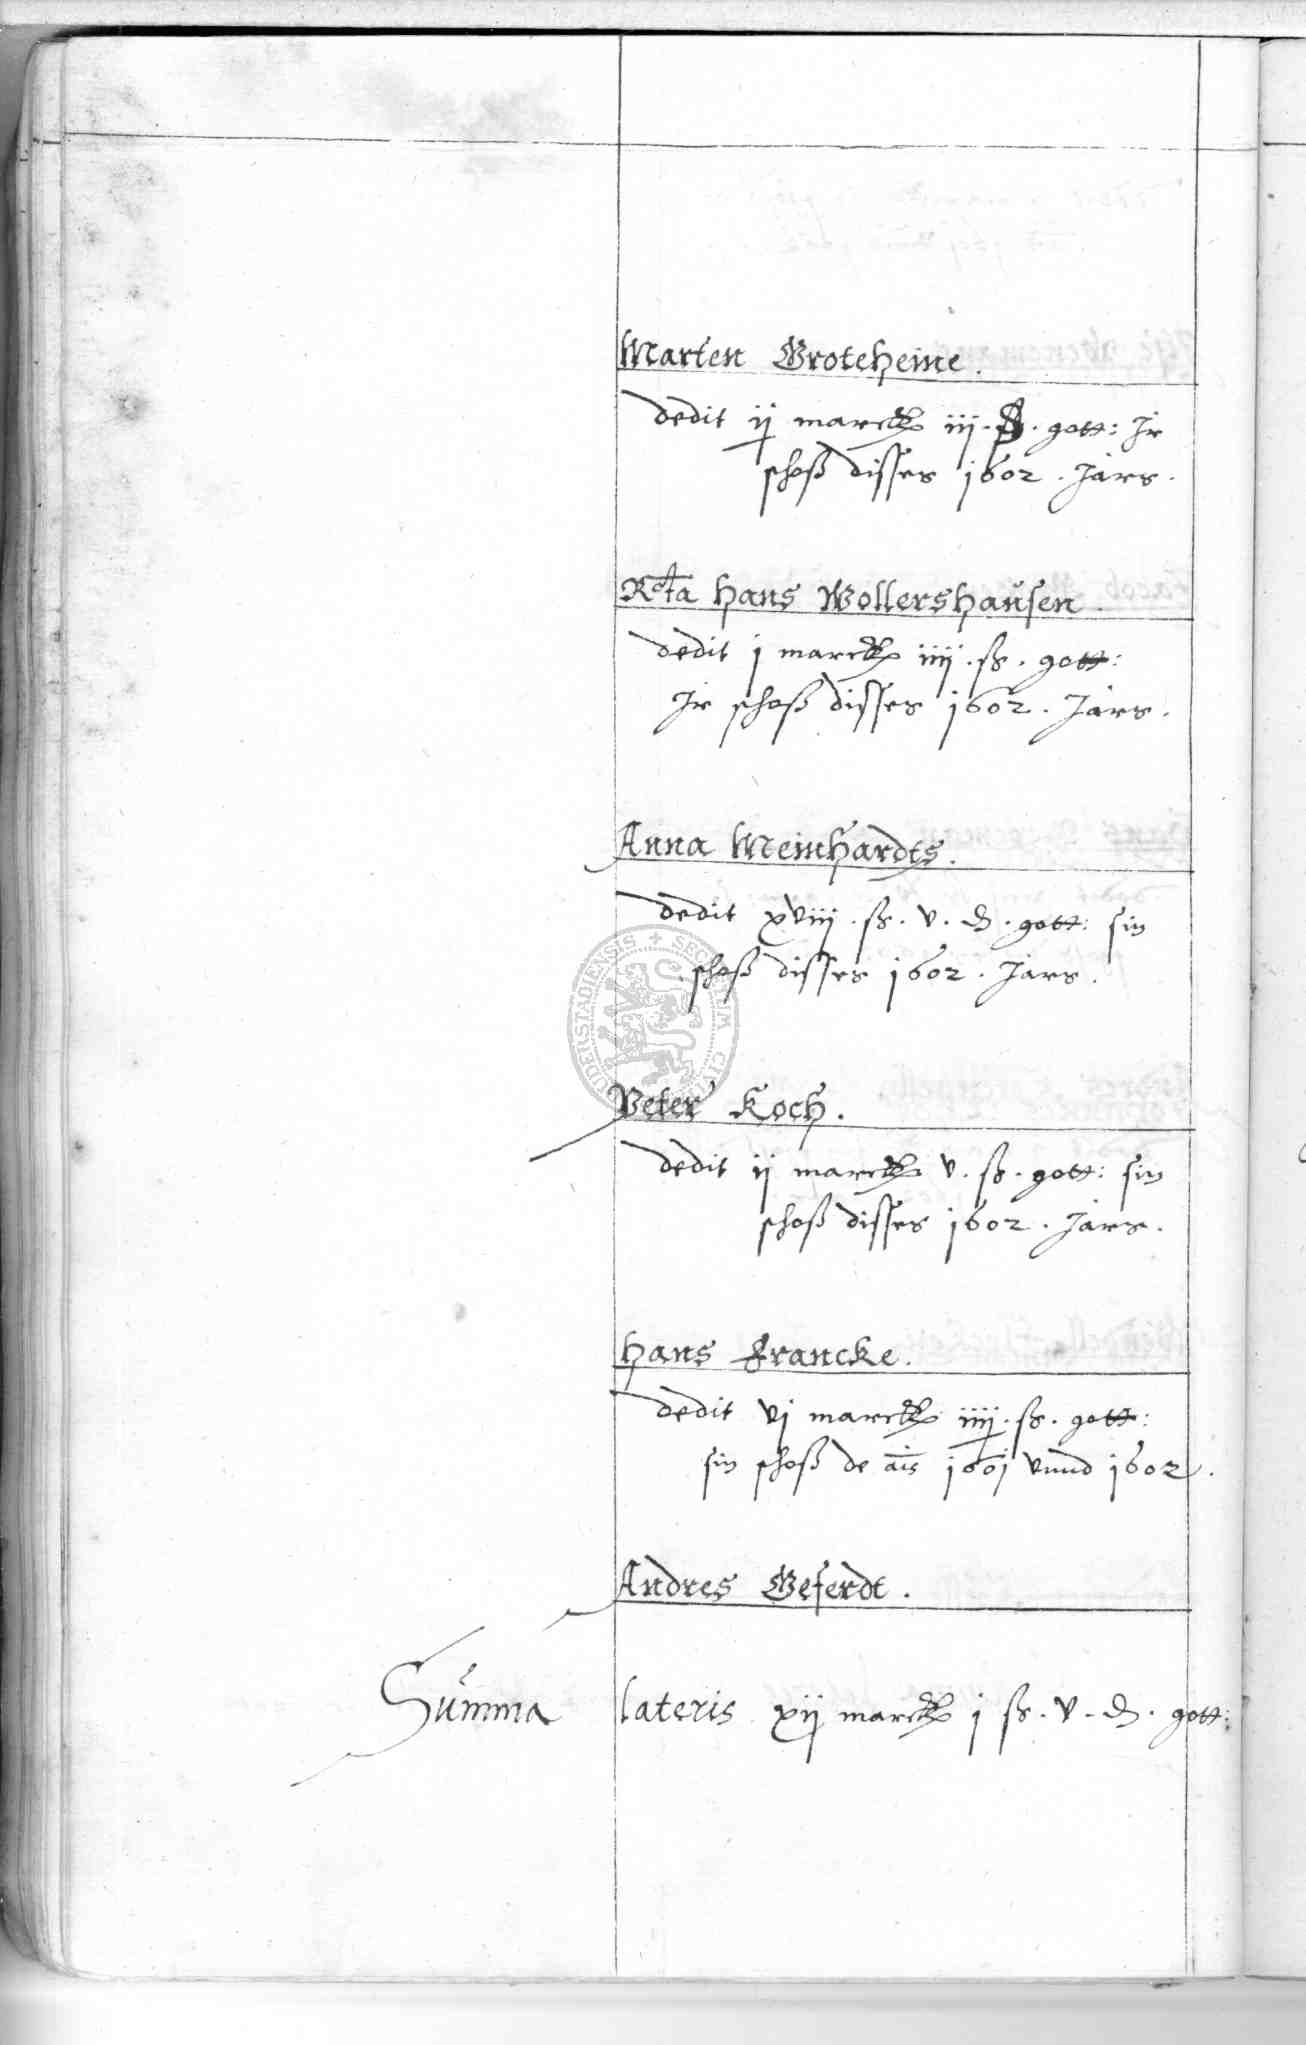 Marten Groteheine.
dedit ij marck iij. ß. gott: Jr
schoß disses 1602. Jars.
Rcta Hans Wollershausen.
dedit j marck iiij. ß. gott:
Jr schoß disses 1602. Jars.
Anna Meinhardts.
dedit xviij. ß. v. d. gott: sin
schoß disses 1602. Jars.
Peter Koch.
dedit ij marck v. ß. gott: sin
schoß disses 1602. Jars.
Hans Francke.
dedit vj marck iiij. ß. gott:
sin schoß de ais 1601 vnnd 1602.
Andres Geferdt.
Summa lateris xij marck j ß. v. d. gott: